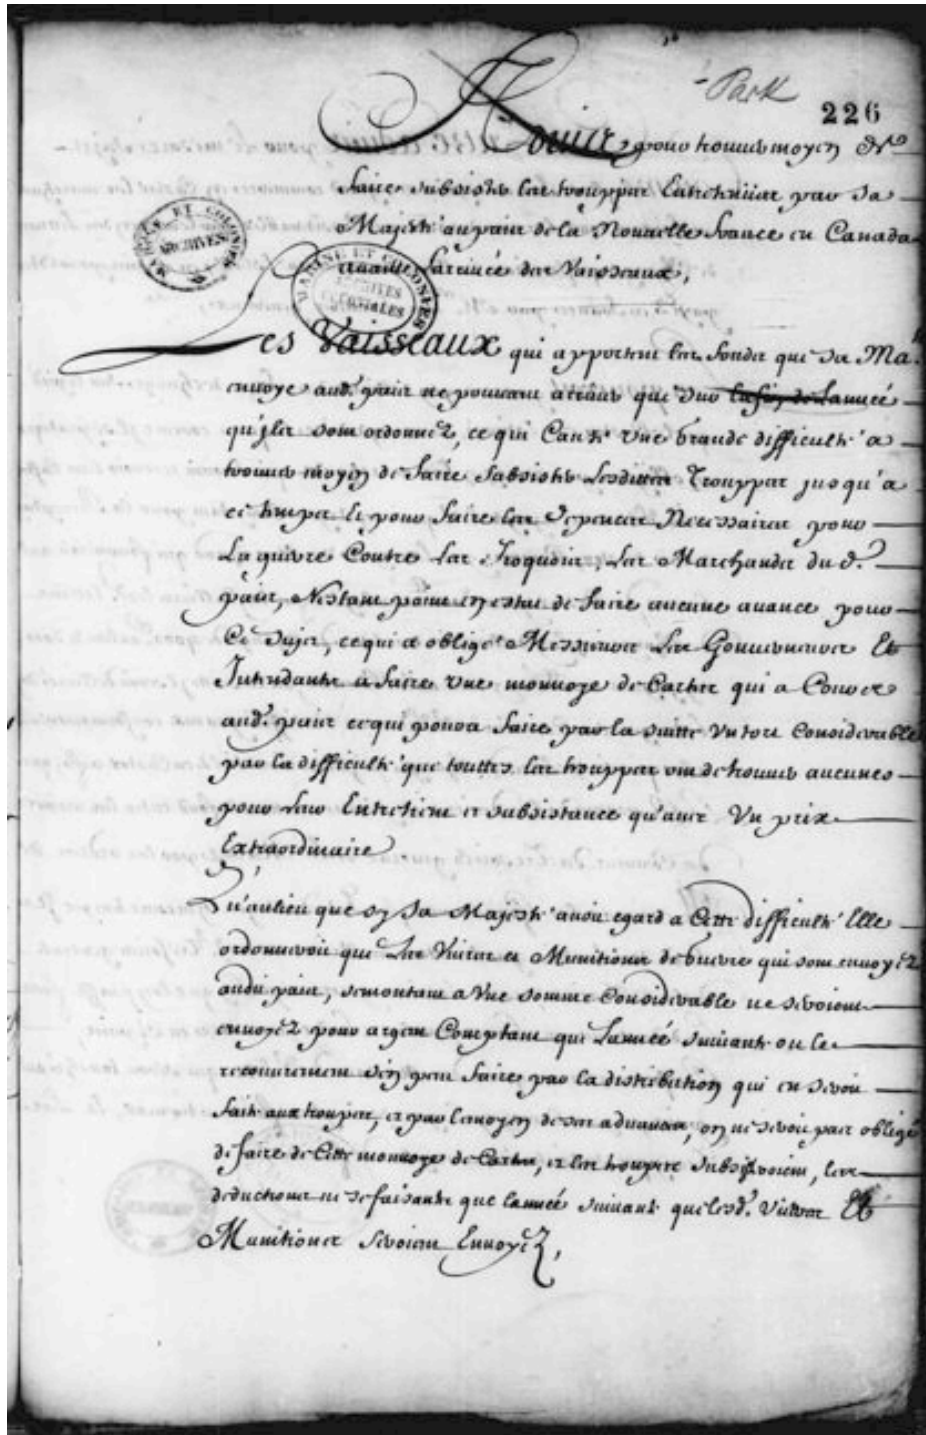 Park
226
Advis, pour trouver moyen de
faire subsister les trouppes Entretenües par sa
Majesté au païs de la Nouvelle france en Canada
avant l'arrivée des Vaisseaux,
MARINE ET COLONIES
ARCHIVES COLONIALES
Les Vaisseaux qui apportent les fonds que sa Ma.té
envoye aud. païs ne pouvant arriver que sur la fin de l'année
qu'jls sont ordonnéz, ce qui Cause une Grande difficulté a
trouver moyen de faire subsister Lesdittes Trouppes jusqu'a
ce temps Et pour faire les depenses Necessaires pour
La guerre Contre Les Iroquois, Les Marchands du d.
païs, N'estant point en estat de faire aucune avance pour
Ce sujet, ce qui a obligé Messieurs Les Gouverneur Et
Intendants a faire une monnoye de Cartes qui a Cours
aud. païs ce qui poura faire par la suitte un tort Considerable
par la difficulté que touttes les trouppes ont de trouver aucunes
pour leur Entretient et subsistance qu'avec Un prix
Extraordinaire
Qu'aulieu que sy Sa Majesté avoit egard a Cette difficulté Elle
ordonneroit que Les Vivres et Munitions de Guerre qui sont envoyéz
audit païs, se montant a Une somme Considerable ne seroient
envoyéz pour argent Comptant que L'année suivante ou le
recouvrement s'en peut faire par la distribution qui en seroit
faite aux troupes, et par le moyen de ces advances, on ne seroit pas obligé
de faire de Cette monnoye de Cartes, et les troupes subsisteroient, les
deductions ne se faisants que l'année suivante que lesd. Vivres Et
Munitions seroient Envoyéz,